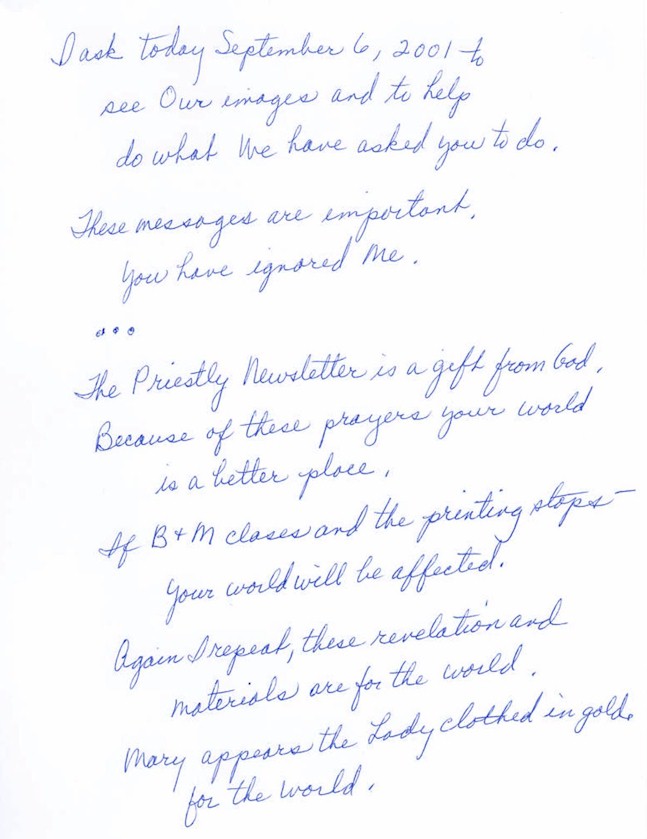 I ask today September 6, 2001 to
see Our images and to help
do what We have asked you to do.
These messages are important.
You have ignored Me.
...
The Priestly Newsletter is a gift from God.
Because of these prayers your world
is a better place.
If B + M closes and the printing stops—
your world will be affected.
Again I repeat, these revelation and
materials are for the world.
Mary appears the Lady clothed in gold.
for the world.